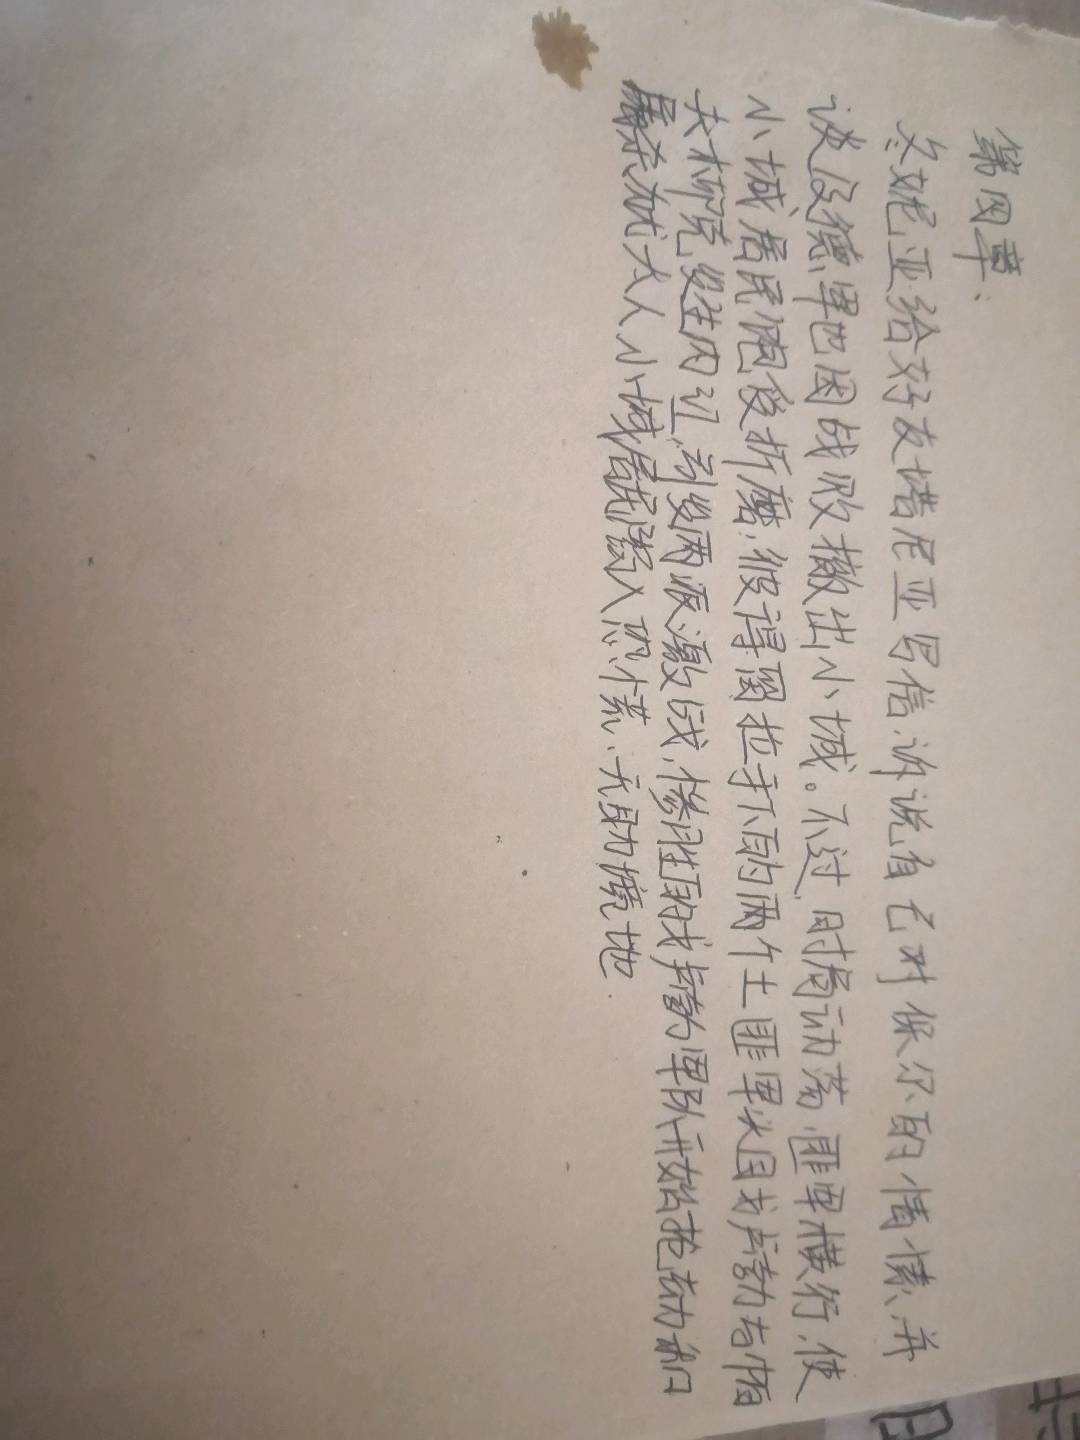 第四章、
冬妮亚给好友塔尼亚写信,诉说自己对保尔的情愫,并
谈及德军也因战败撤出小城。不过,时局动荡,匪军横行,使
小城居民饱受折磨,彼得留拉手下的两个土匪军头目戈卢勃与帕
夫柳克发生内讧,引发两派激战,惨胜的戈卢勃军队开始抢劫和
屠杀犹太人,小城居民陷入恐慌、无助境地.